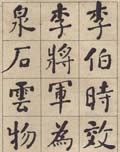 李伯時效
李將軍為
泉石雲物